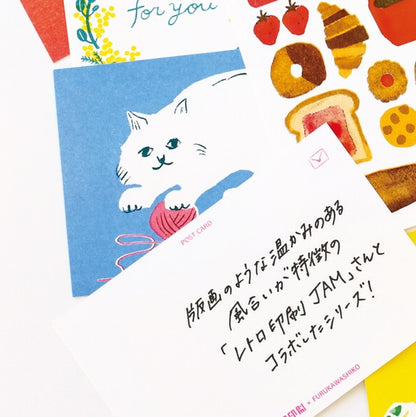 for you
POST CARD
版画のような温かみのある
風合いが特徴の
「レトロ印刷 JAM」さんと
コラボしたシリーズ!
印刷 × FURUKAWASHIKO